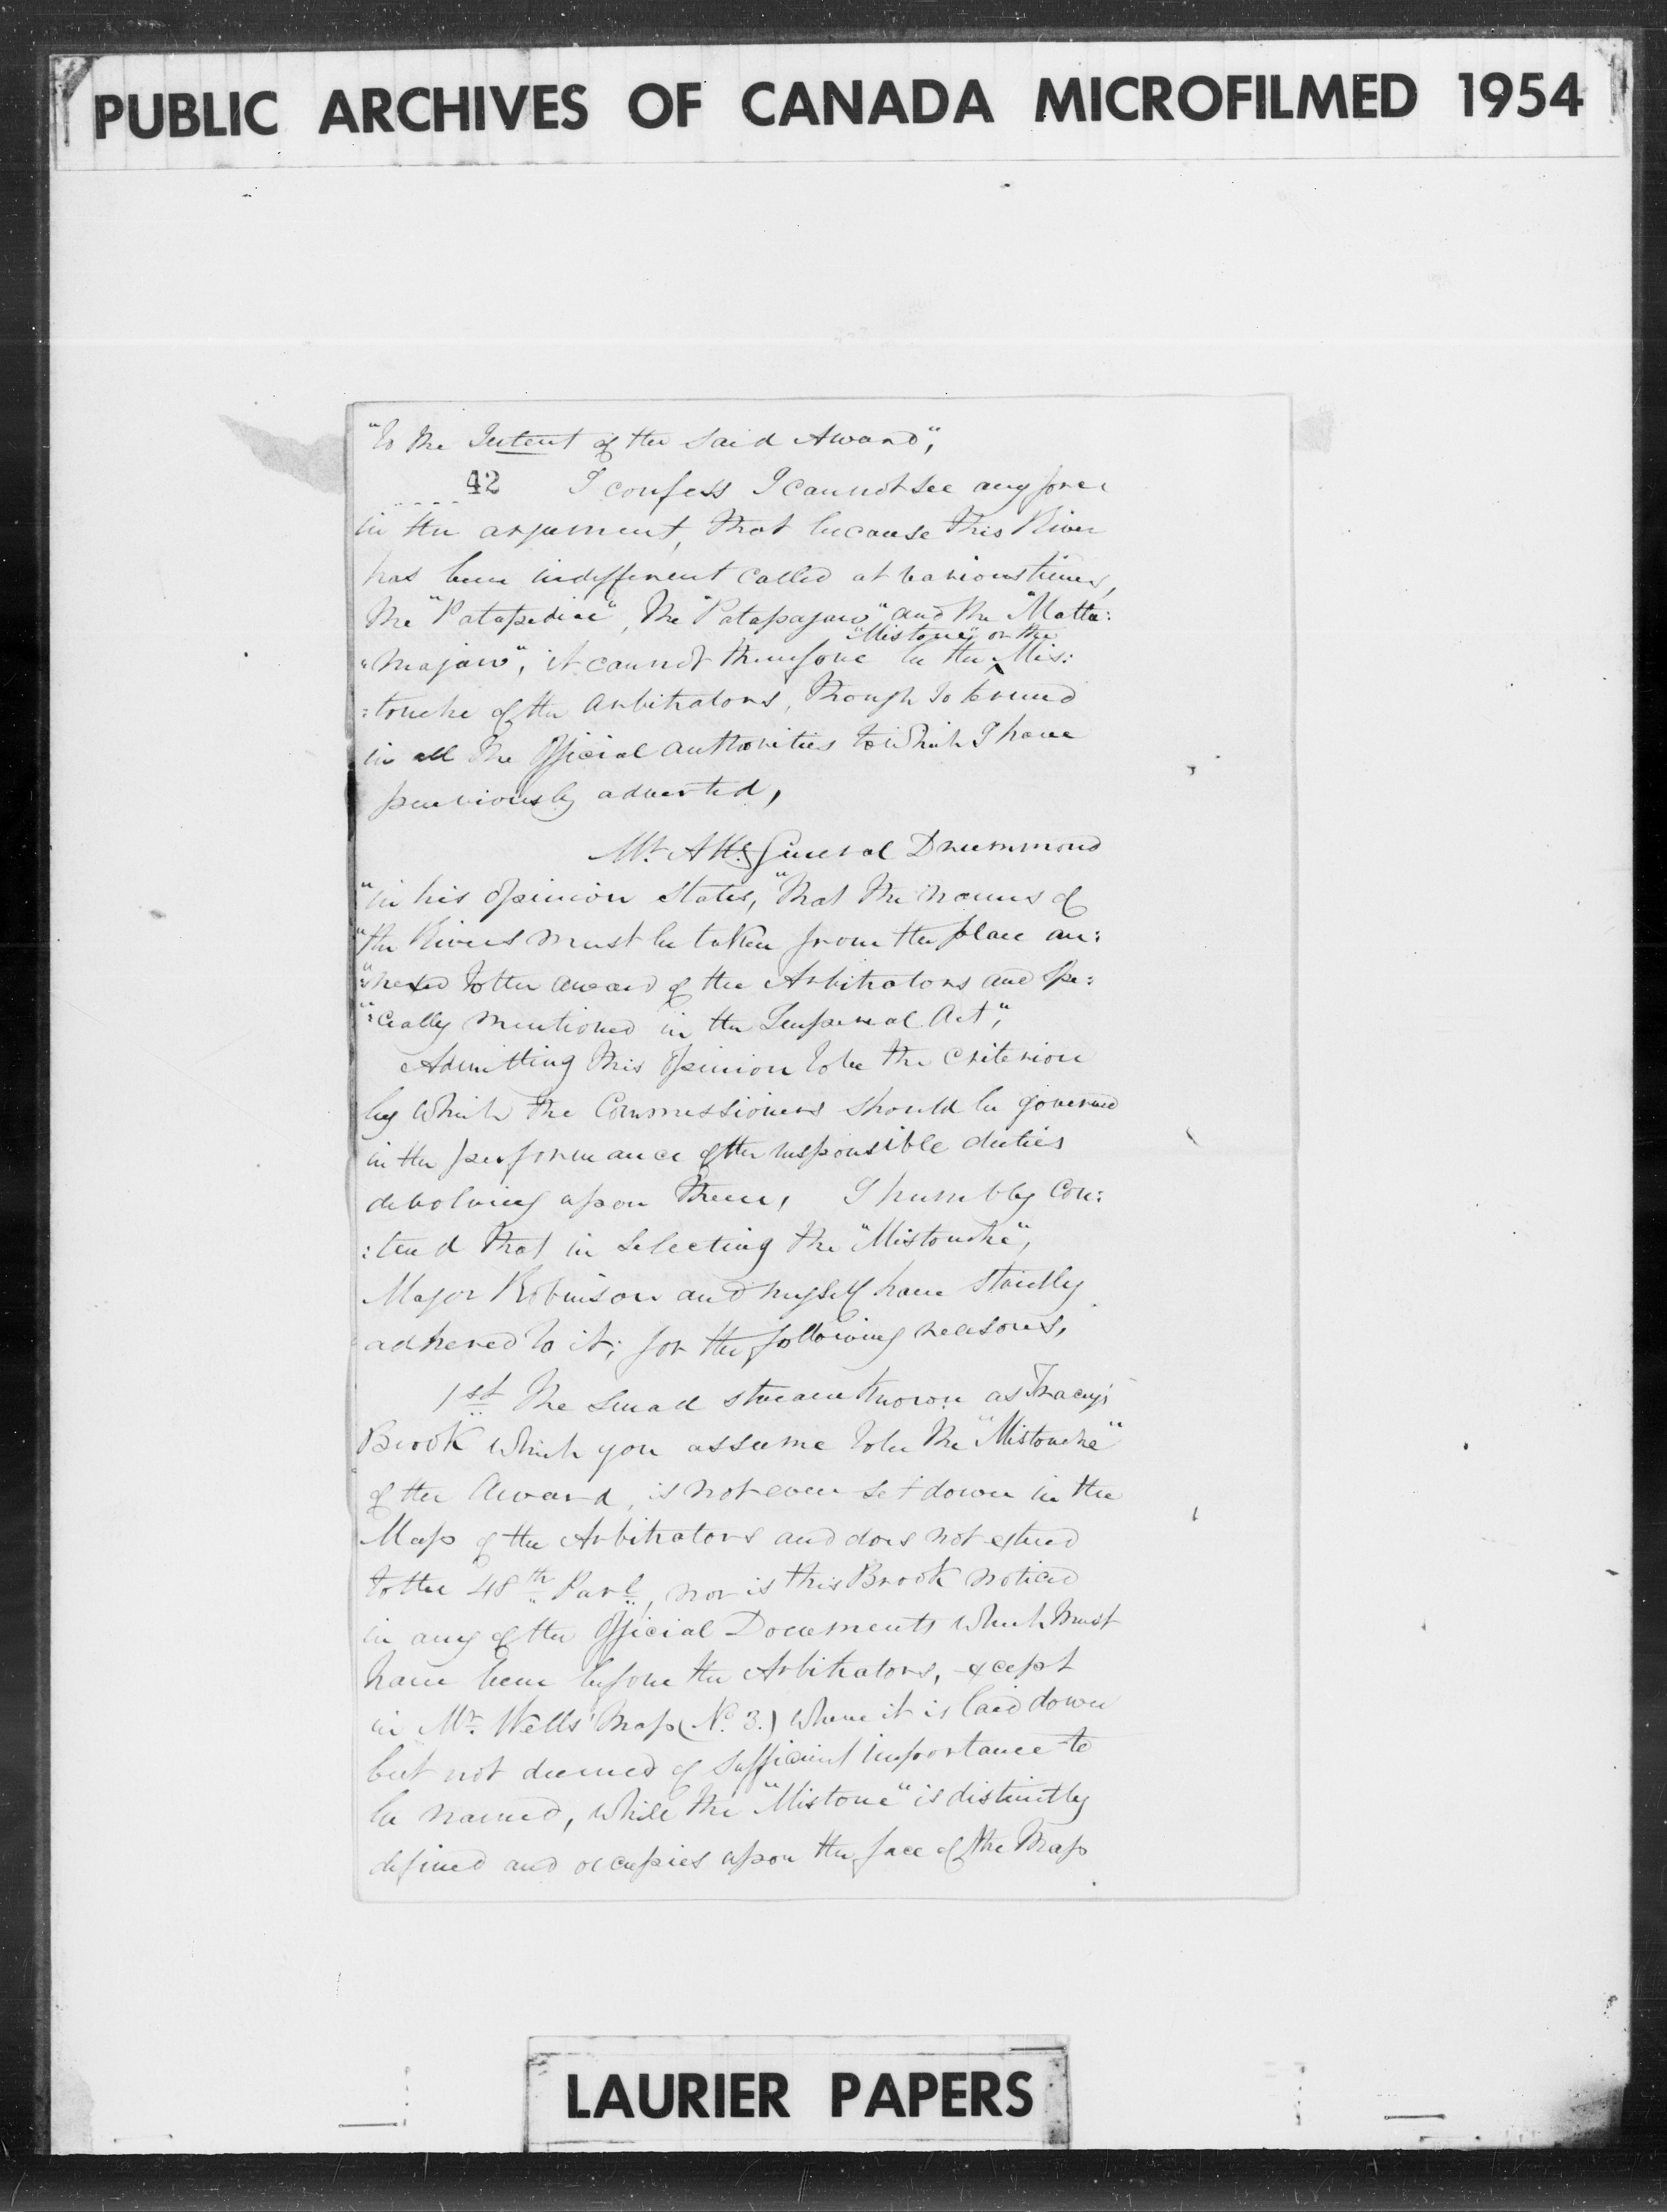 PUBLIC ARCHIVES OF CANADA MICROFILMED 1954
"to the Intent of the said Award",
42 I confess I cannot see any force
in the argument, that because this River
has been indifferent called at various times,
the "Patapediac", the "Patapajaw" and the "Matta:
"Mistoue" or the
"majaw", it cannot therefore be the ^ Mis:
:touche of the Arbitrators, though so termed
in all the Official authorities to which I have
previously adverted,
Mr. Atty. General Drummond
"in his opinion states, "that the names of
"the Rivers must be taken from the plan an:
":nexed to the award of the Arbitrators and spe:
":cially mentioned in the Imperial Act",
Admitting this opinion to be the criterion
by which the Commissioners should be governed
in the performance of the responsible duties
devolving upon them, I humbly con:
:tend that in selecting the "Mistouche",
Major Robinson and myself have strictly
adhered to it; for the following reasons,
1st The small stream known as Tracy's
Brook which you assume to be the "Mistouche"
of the Award, is not even set down in the
Map of the Arbitrators and does not extend
to the 48th Parl, nor is this Brook noticed
in any of the Official Documents which must
have been before the Arbitrators, except
in Mr. Wells' Map (No. 3.) where it is laid down
but not deemed of sufficient importance to
be named, while the "Mistoue" is distinctly
defined and occupies upon the face of the Map
LAURIER PAPERS